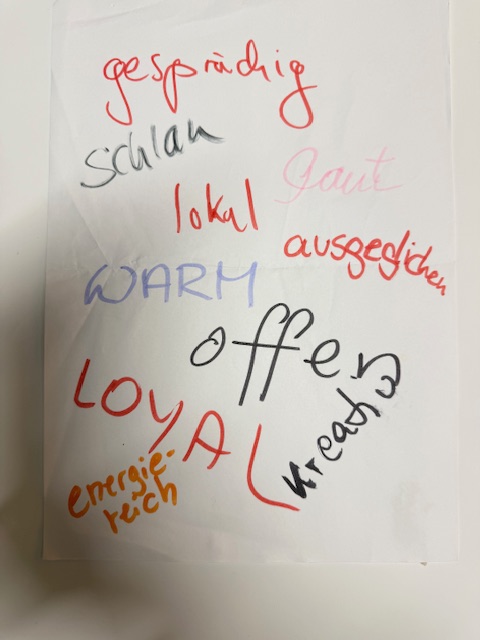 gesprächig
schlau
lokal
ausgeglichen
WARM
offen
LOYAL
kreativ
energie-
reich